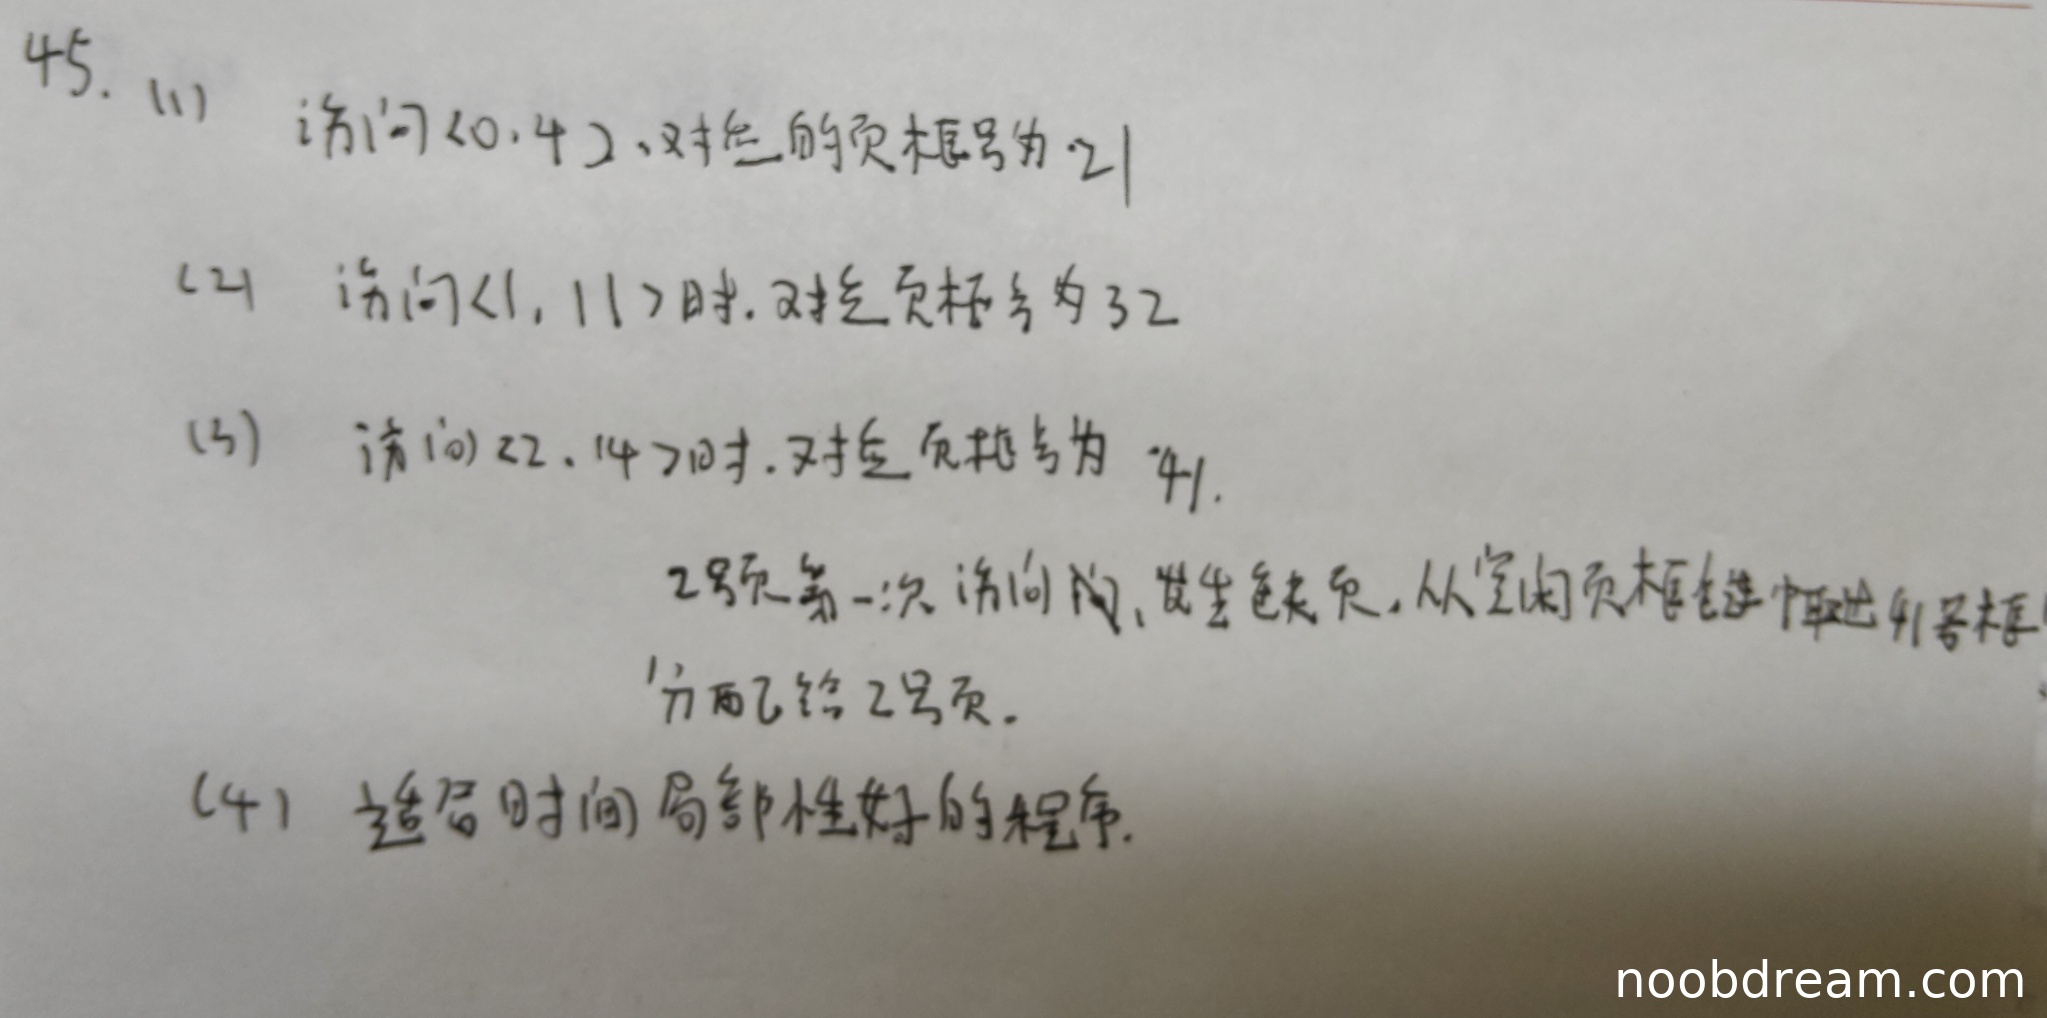 45. (1) 访问<0.4>,对应的页框号为21
(2) 访问<1,11>时.对应页框号为32
(3) 访问<2.14>时.对应页框号为41.
2号页第一次访问时,发生缺页,从空闲页框链中取出41号框
分配给2号页.
(4) 适合时间局部性好的程序.
noobdream.com